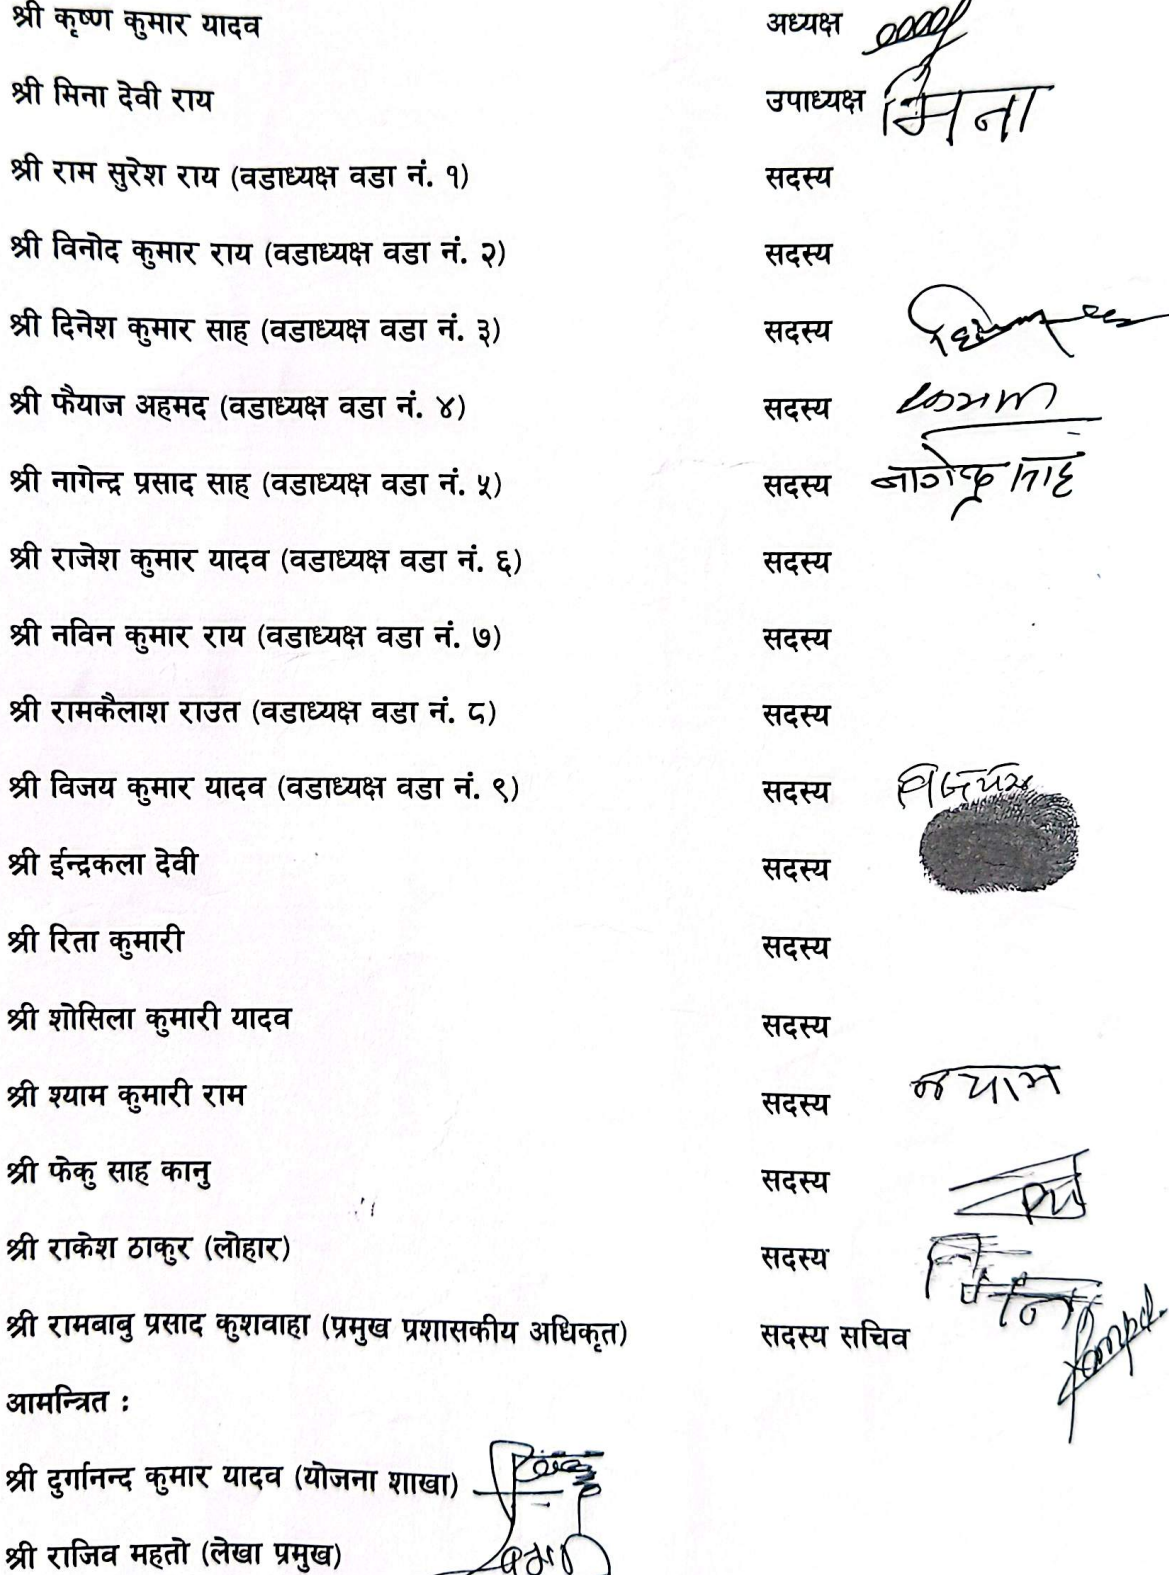 श्री कृष्ण कुमार यादव अध्यक्ष
श्री मिना देवी राय उपाध्यक्ष मिना
श्री राम सुरेश राय (वडाध्यक्ष वडा नं. १) सदस्य
श्री विनोद कुमार राय (वडाध्यक्ष वडा नं. २) सदस्य
श्री दिनेश कुमार साह (वडाध्यक्ष वडा नं. ३) सदस्य
श्री फैयाज अहमद (वडाध्यक्ष वडा नं. ४) सदस्य
श्री नागेन्द्र प्रसाद साह (वडाध्यक्ष वडा नं. ५) सदस्य नागेन्द्र साह
श्री राजेश कुमार यादव (वडाध्यक्ष वडा नं. ६) सदस्य
श्री नविन कुमार राय (वडाध्यक्ष वडा नं. ७) सदस्य
श्री रामकैलाश राउत (वडाध्यक्ष वडा नं. ८) सदस्य
श्री विजय कुमार यादव (वडाध्यक्ष वडा नं. ९) सदस्य
श्री ईन्द्रकला देवी सदस्य
श्री रिता कुमारी सदस्य
श्री शोसिला कुमारी यादव सदस्य
श्री श्याम कुमारी राम सदस्य
श्री फेकु साह कानु सदस्य
श्री राकेश ठाकुर (लोहार) सदस्य
श्री रामबाबु प्रसाद कुशवाहा (प्रमुख प्रशासकीय अधिकृत) सदस्य सचिव
आमन्त्रित :
श्री दुर्गानन्द कुमार यादव (योजना शाखा)
श्री राजिव महतो (लेखा प्रमुख)